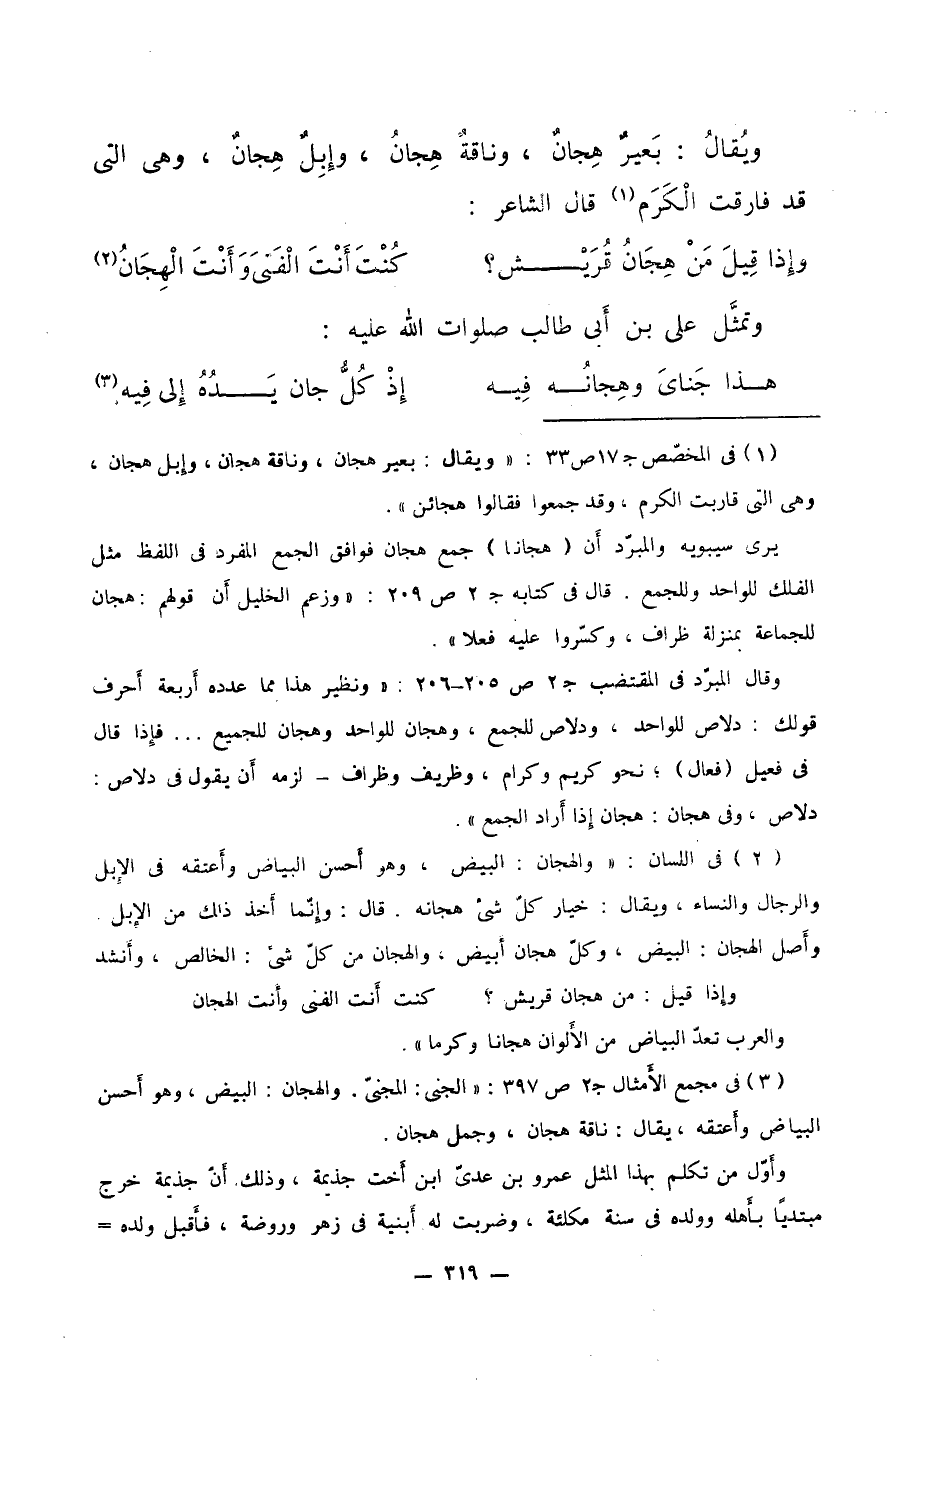 ويُقالُ : بَعيرٌ هِجانٌ ، وناقةٌ هِجانُ ، وإبِلٌ هِجانٌ ، وهى التى
قد فارقت الْكَرَم(١) قال الشاعر :
وإذا قِيلَ مَنْ هِجَانُ قُرَيْـــــش؟ كُنْتَ أَنْتَ الْفَتَىَ وَأَنْتَ الْهِجَانُ(٢)
وتمثَّل على بن أَبى طالب صلوات الله عليه :
هـــذا جَناىَ وهِجانُـــه فِيـــه إذْ كُلُّ جان يَـــــدُهُ إلى فِيه(٣)
(١) فى المخصّص جـ١٧ص٣٣ : « ويقال : بعير هجان ، وناقة هجان ، وإبل هجان ،
وهى التى قاربت الكرم ، وقد جمعوا فقالوا هجائن » .
يرى سيبويه والمبرّد أَن ( هجانا ) جمع هجان فوافق الجمع المفرد فى اللفظ مثل
الفلك للواحد وللجمع . قال فى كتابه جـ ٢ ص ٢٠٩ : « وزعم الخليل أَن قولهم : هجان
للجماعة بمنزلة ظراف ، وكسّروا عليه فعلا » .
وقال المبرّد فى المقتضب جـ٢ ص ٢٠٥-٢٠٦ : « ونظير هذا مما عدده أربعة أَحرف
قولك : دلاص للواحد ، ودلاص للجمع ، وهجان للواحد وهجان للجميع ... فإذا قال
فى فعيل (فعال) ؛ نحو كريم وكرام ، وظريف وظراف - لزمه أَن يقول فى دلاص :
دلاص ، وفى هجان : هجان إذا أَراد الجمع » .
( ٢ ) فى اللسان : « والهجان : البيض ، وهو أَحسن البياض وأَعتقه فى الإبل
والرجال والنساء ، ويقال : خيار كلّ شئ هجانه . قال : وإنّما أُخذ ذلك من الإبل .
وأَصل الهجان : البيض ، وكلّ هجان أَبيض ، والهجان من كلّ شئ : الخالص ، وأَنشد
وإذا قيل : من هجان قريش ؟ كنت أَنت الفتى وأَنت الهجان
والعرب تعدّ البياض من الأَلوان هجانا وكرما » .
( ٣ ) فى مجمع الأَمثال جـ٢ ص ٣٩٧ : « الجنى : المجنىّ . والهجان : البيض ، وهو أَحسن
البياض وأَعتقه ، يقال : ناقة هجان ، وجمل هجان .
وأَوّل من تكلم بهذا المثل عمرو بن عدىّ ابن أُخت جذيمة ، وذلك أَنّ جذيمة خرج
مبتديًا بأَهله وولده فى سنة مكلئة ، وضربت له أَبنية فى زهر وروضة ، فأَقبل ولده =
— ٣١٩ —